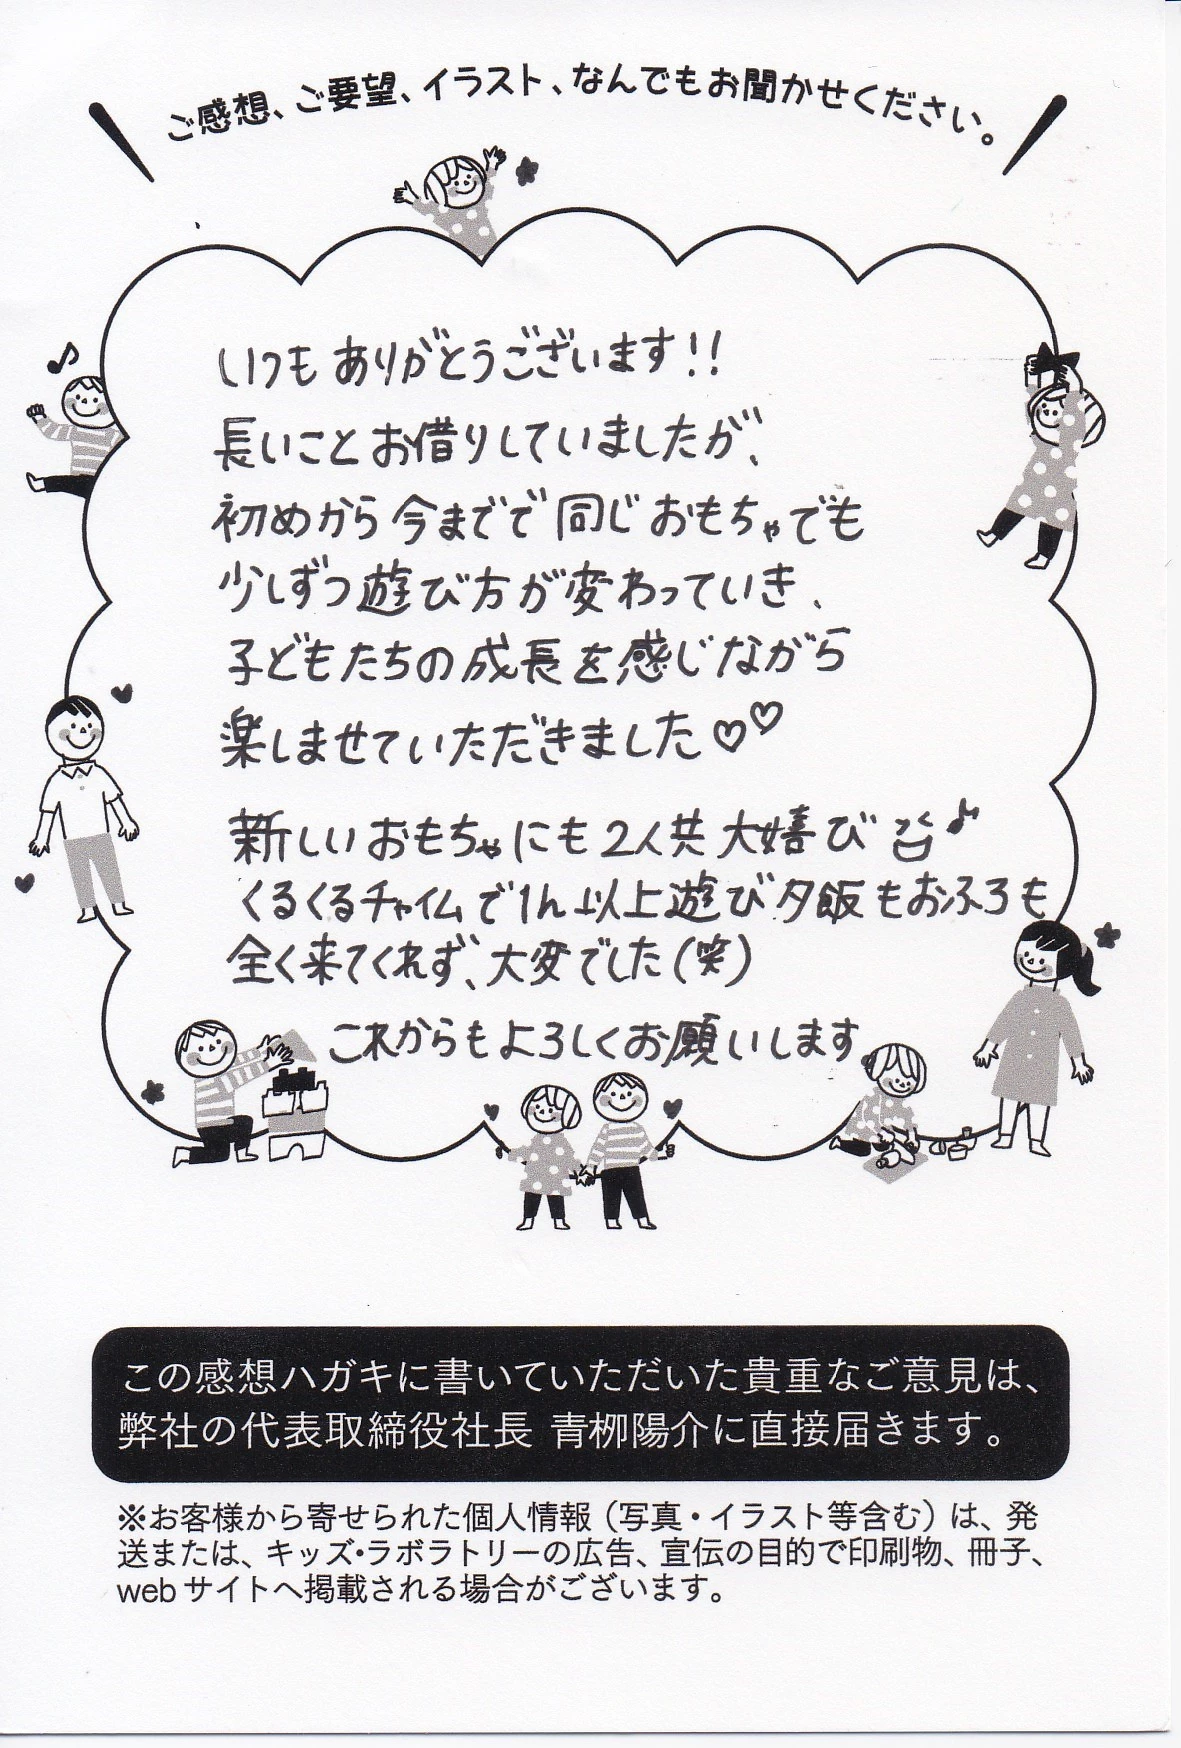 ご感想、ご要望、イラスト、なんでもお聞かせください。
いつもありがとうございます!!
長いことお借りしていましたが、
初めから今までで同じおもちゃでも
少しずつ遊び方が変わっていき、
子どもたちの成長を感じながら
楽しませていただきました♡♡
新しいおもちゃにも2人共大嬉び♪
くるくるチャイムで1h以上遊び夕飯もおふろも
全く来てくれず、大変でした(笑)
これからもよろしくお願いします
この感想ハガキに書いていただいた貴重なご意見は、
弊社の代表取締役社長 青栁陽介に直接届きます。
※お客様から寄せられた個人情報（写真・イラスト等含む）は、発
送または、キッズ・ラボラトリーの広告、宣伝の目的で印刷物、冊子、
webサイトへ掲載される場合がございます。